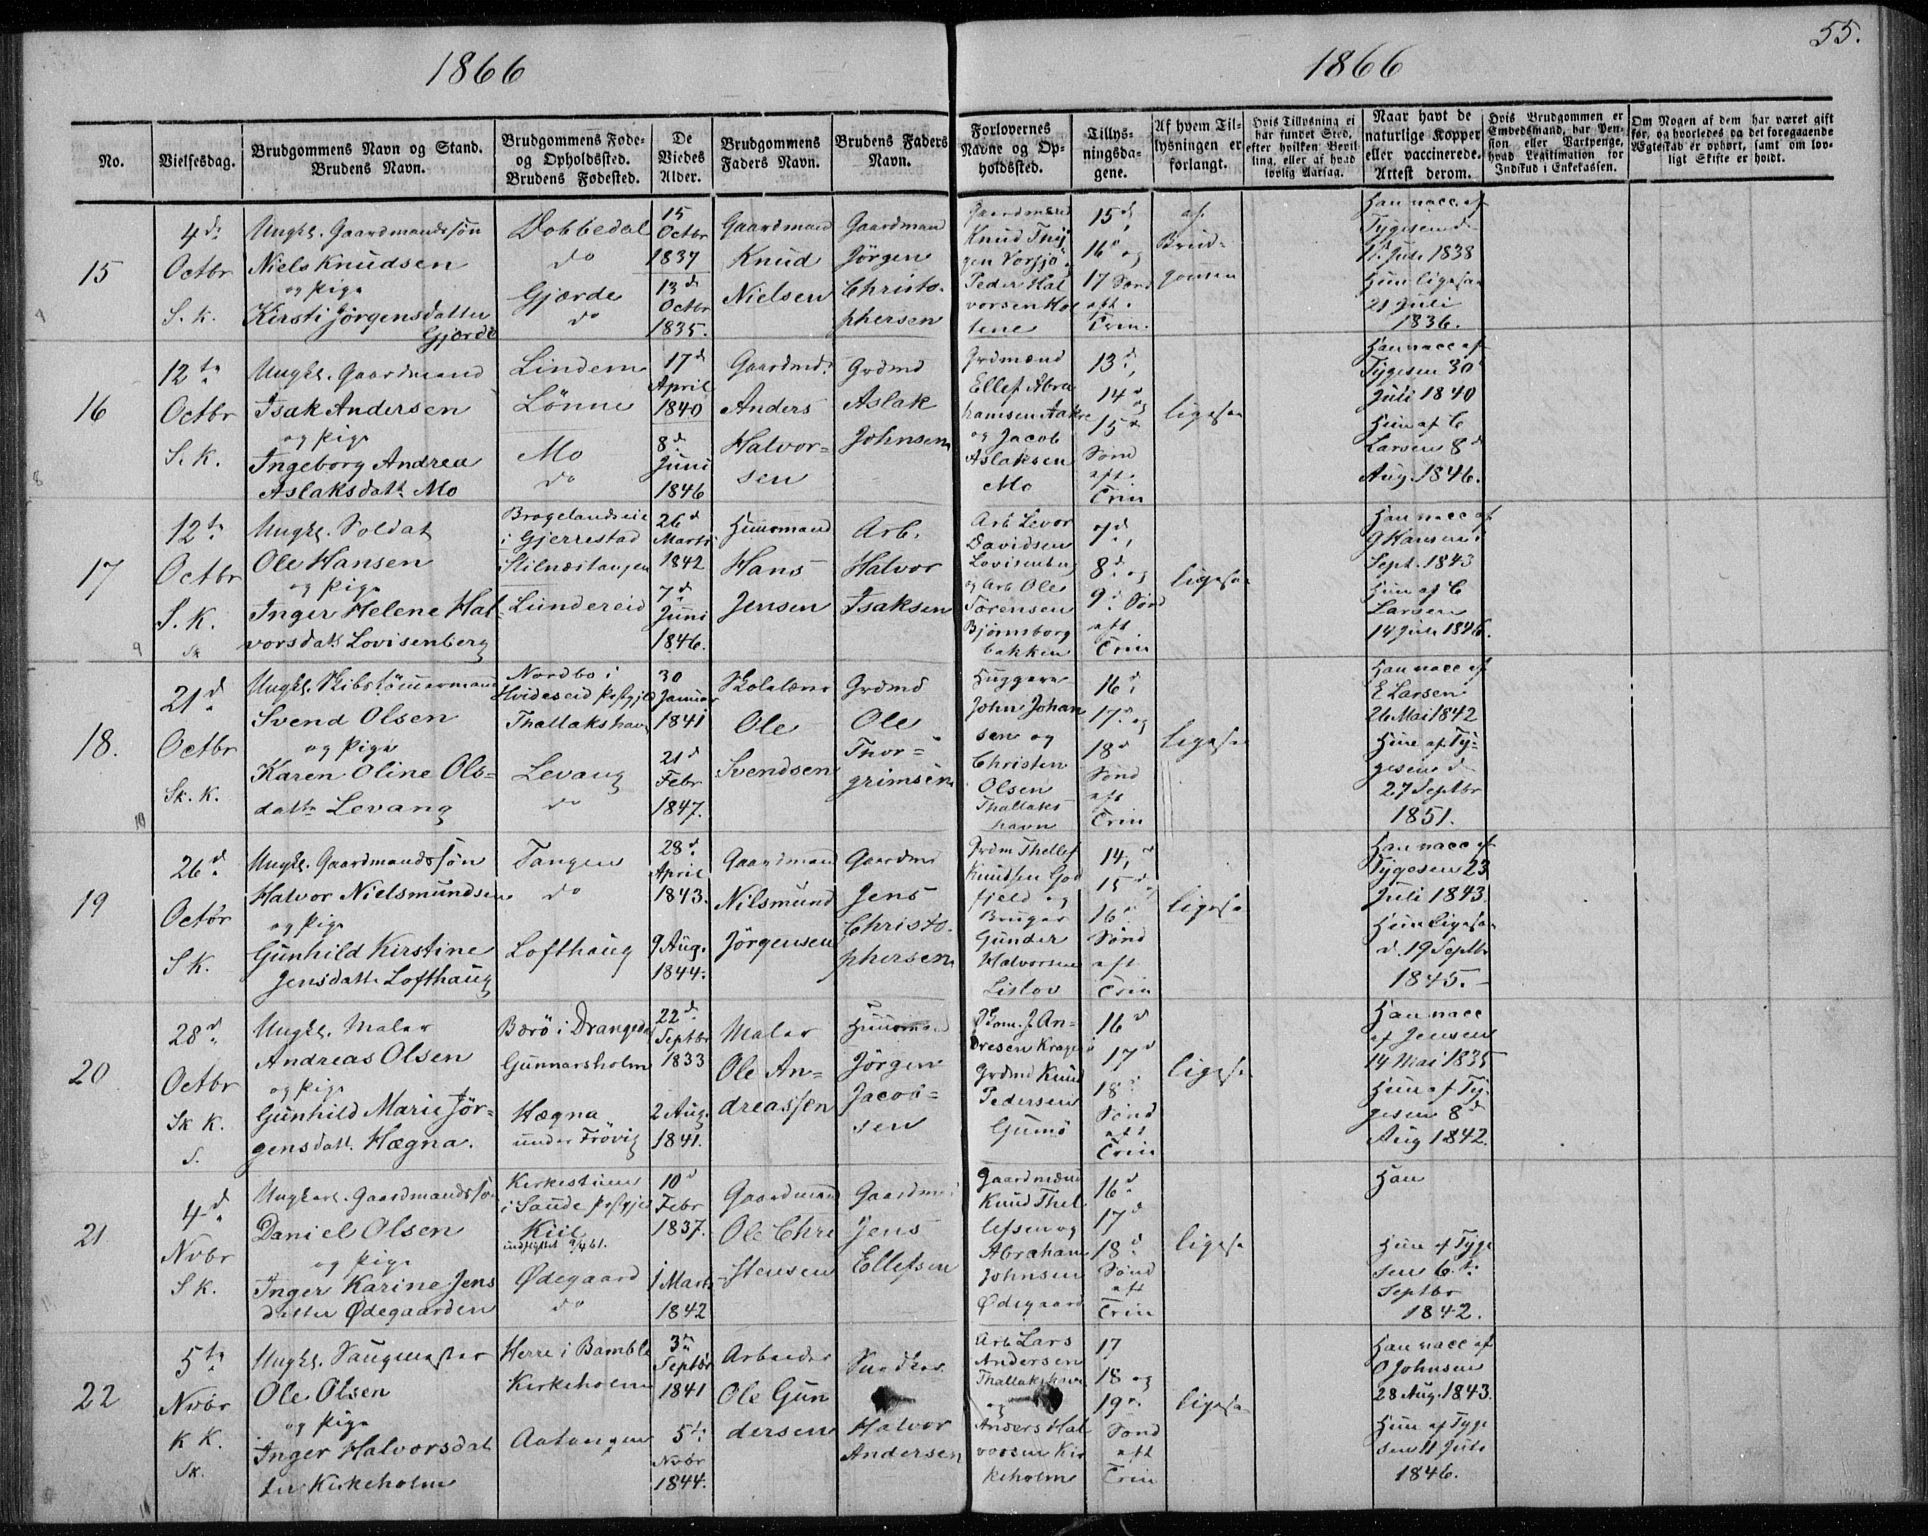 1866
1866
55.
No.
Vielsesdag.
Brudgommens Navn og Stand.
Brudens Navn.
Brudgommens Føde-
og Opholdssted.
Brudens Fødested.
De
Viedes
Alder.
Brudgommens
Faders Navn.
Brudens Faders
Navn.
Forlovernes
Navne og Op-
holdssted.
Tillys-
ningsda-
gene.
Af hvem Til-
lysningen er
forlangt.
Hvis Tillysning ei
har fundet Sted,
efter hvilken Bevil-
ling, eller af hvad
lovlig Aarsag.
Naar havt de
naturlige Kopper
eller vaccinerede.
Attest derom.
Hvis Brudgommen er
Embedsmand, har Pen-
sion eller Vartpenge,
hvad Legitimation for
Indskud i Enkekassen.
Om Nogen af dem har været gift
før, og hvorledes da det foregaaende
Ægteskab er ophørt, samt om lov-
ligt Skifte er holdt.
15
4de
Octbr
S. K.
Ungkl. Gaardmandssøn
Niels Knudsen
og Pige
Kirsti Jörgensdatter
Gjerde
Dobbedal
do
Gjærde
do
15
Octbr
1837
13d
Octbr
1835.
Gaardmand
Knud
Nielsen
Gaardmand
Jörgen
Christo-
phersen
Gaardmænd
Knud Thy
gen
Peder Hal
vorsen Hol
tene
15d,
16d og
17 Sønd
aft.
Trin.
af
Brud-
gommen
Han vacc. af
Tygesen d
11 Juli 1838
Hun ligesaa
21 Juli
1836.
16
12te
Octbr
S. K.
Ungkl. Gaardmand
Isak Andersen
og Pige
Ingeborg Andrea
Aslaksdatt. Mo
Lindem
Lönne
Mo
do
17d
April
1840
8d
Juni
1846
Gaardmd.
Anders
Halvor-
sen
Grdmd
Aslak
Johnsen
Grdmænd
Ellef Abra
hamsen Aakre
og Jacob
Aslaksen
Mo
13d,
14d og
15d
Sønd
aft.
Trin
ligesaa
Han vacc af
Tygesen 30
Juli 1840
Hun af C
Larsen 8d
Aug. 1846.
17
12te
Octbr
S. K.
Sk
Ungkl. Soldat
Ole Hansen
og Pige
Inger Helene Hal-
vorsdatt Lovisenberg
Brogelandseie
i Gjerrestad
Stilnæstangen
Lundereid
26d
Marts
1842
7d
Juni
1846.
Huusmand
Hans
Jensen
Arb.
Halvor
Isaksen
Arb Levor
Davidsen
Lovisenb
og Arb Ole
Sörensen
Bjørnsborg
bakken
7d,
8d og
9d Sønd
aft
Trin
ligesaa
Han vacc af
G Hansen i
Sept. 1843
Hun af C
Larsen
14 Juli 1846.
18.
21d
Octbr
Sk. K.
Ungkl. Skibstömmermand
Svend Olsen
og Pige
Karen Oline Ols-
datter Levang
Nordbo i
Hvideseid Præstgjeld
Thallakshavn
Levang
do
30
Januar
1841
21d
Febr
1847.
Skolelærer
Ole
Svendsen
Grdmd
Ole
Thor-
grimsen
Huggere
John Johan
sen og
Christen
Olsen
Thallaks
havn
16d,
17d og
18d
Sønd
aft
Trin
ligesaa
Han vacc af
E Larsen
26 Mai 1842
Hun af Ty-
gesen d
27 Septbr
1851.
19
26d
Octbr
S K.
Ungkl. Gaardmandssøn
Halvor Nielsmundsen
og Pige
Gunhild Kirstine
Jensdatt. Lofthaug
Tangen
do
Lofthaug
28d
April
1843.
9 Aug.
1844.
Gaardmand
Nilsmund
Jørgensen
Gaardmd
Jens
Christo-
phersen
Grdm Thellef
Knudsen God
fjeld og
Bruger
Gunder
Halvorsen
Lislov
14d,
15d og
16d
Sønd
aft
Trin
ligesaa
Han vacc af
Tygesen 23
Juli 1843.
Hun ligesaa
d. 19 Septb.
1845.
20
28d
Octbr
Sk K.
S.
Ungkl. Maler
Andreas Olsen
og Pige
Gunhild Marie Jør-
gensdatt. Hægna.
Bærö i Drangedal
Gunnarsholm
Hægna
under Frövig
22d
Septbr
1833
2 Aug.
1841.
Maler
Ole An-
dreassen
Huusmand
Jörgen
Jacob-
sen
Skom. J. An-
dresen Kragerø
Grdmd Knud
Pedersen
Gumö
16d
17d
18d
Sønd
aft
Trin
ligesaa
Han vacc
af Jensen
14 Mai 1835
Hun af Ty-
gesen 8d
Aug 1842.
21
4d
Nvbr
S K.
Ungkarl. Gaardmandssø
Daniel Olsen
og Pige
Inger Karine Jens
datter Ødegaarden
Kirkestuen
i Saude Præstgjeld
Kiil
indflyttet 9/4 61.
Ødegaard
do
10d
Febr
1837.
1 Marts
1842
Gaardmand
Ole Chri
stensen
Gaardmd
Jens
Ellefsen
Gaardmænd
Knud Thel
lefsen og
Abraham
Johnsen
Ødegaard
16d
17d
18d
Sønd
aft
Trin
ligesaa
Han
Hun af Tyge
sen 6te
Septbr
1842.
22
5te
Nvbr
K K.
Sk.
Ungkl. Saugmester
Ole Olsen
og Pige
Inger Halvorsdat
ter Kirkeholm
Herre i Bamble
Kirkeholm
Aatangen
3de
Septbr
1841
5te
Nvbr
1844.
Arbeider
Ole Gun
dersen
Snedker
Halvor
Andersen
Arb Lars
Andersen
Thallakshavn
og
Anders Hal
vorsen Kir
keholm
17
18 og
19de
Sønd
aft
Trin
ligesaa
Han vacc af
O Johnsen
28 Aug. 1843.
Hun af Tyge
sen 11 Juli
1846.